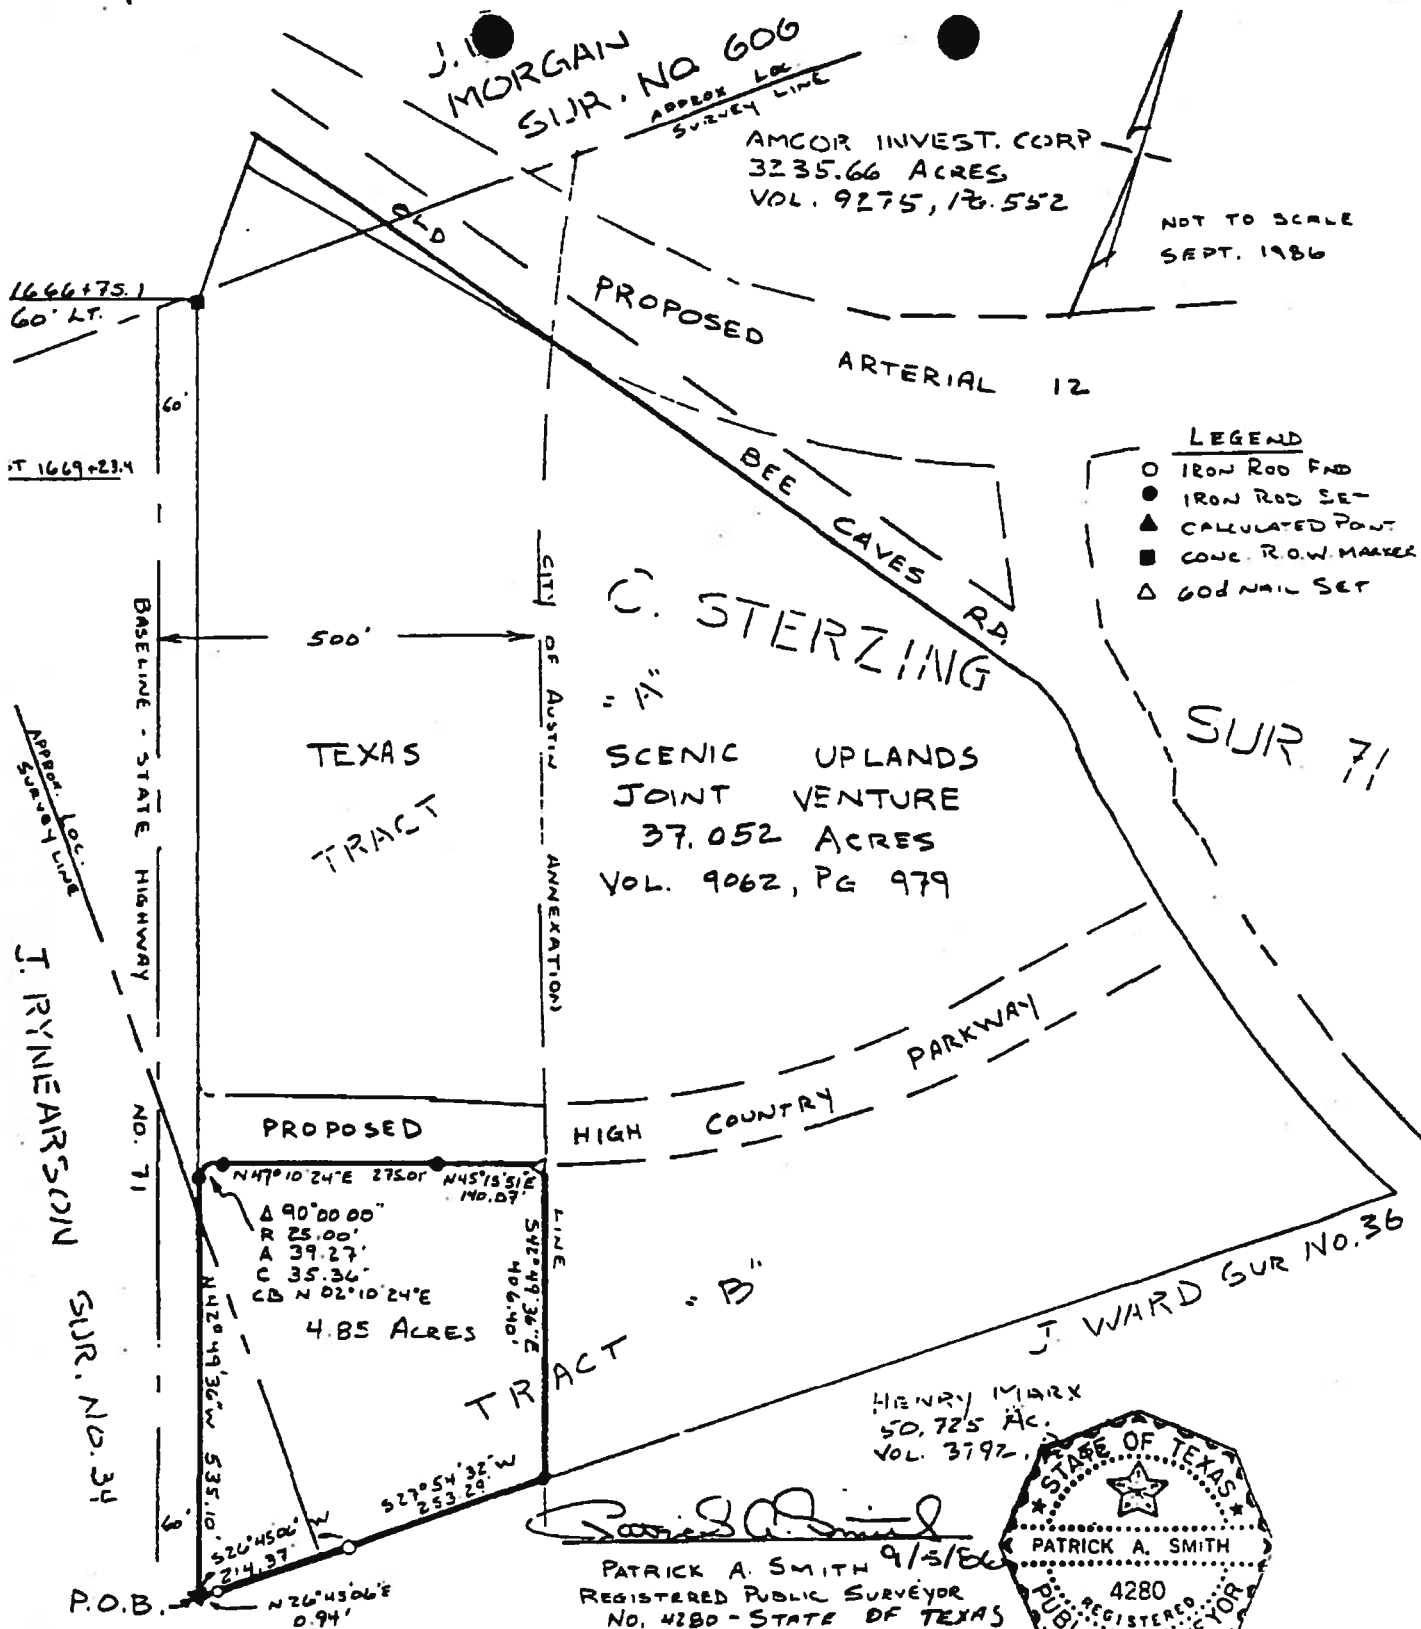 MORGAN
SUR. NO 606
APPROX LOC
SURVEY LINE
AMCOR INVEST. CORP
3235.66 ACRES
VOL. 9275, PG. 552
NOT TO SCALE
SEPT. 1986
1666+75.1
60' LT.
60'
1669+23.4
OLD
BEE CAVES RD.
PROPOSED
ARTERIAL 12
LEGEND
IRON ROD FND
IRON ROD SET
CALCULATED POINT
CONC. R.O.W. MARKER
60d NAIL SET
C. STERZING
SUR 71
500'
BASELINE - STATE HIGHWAY NO. 71
CITY OF AUSTIN ANNEXATION
LINE
APPROX. LOC.
SURVEY LINE
TEXAS
TRACT
"A"
SCENIC UPLANDS
JOINT VENTURE
37.052 ACRES
VOL. 9062, PG 979
J. RYNEARSON SUR. NO. 34
PROPOSED HIGH COUNTRY PARKWAY
N47°10'24"E 275.01'
N45°15'51"E
140.07'
Δ 90°00'00"
R 25.00'
A 39.27'
C 35.36'
CB N 02°10'24"E
4.85 ACRES
S42°49'36"E
406.40'
N42°49'36"W 535.10'
TRACT "B"
J WARD SUR NO. 36
HENRY MARX
50.725 AC.
VOL. 3792,
S27°54'32"W
253.29'
S26°45'06"W
214.37'
60'
P.O.B.
N26°45'06"E
0.94'
9/5/86
PATRICK A. SMITH
REGISTERED PUBLIC SURVEYOR
NO. 4280 - STATE OF TEXAS
STATE OF TEXAS
PATRICK A. SMITH
4280
REGISTERED